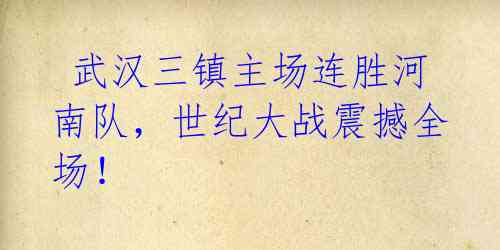 武汉三镇主场连胜河
南队，世纪大战震撼全
场！